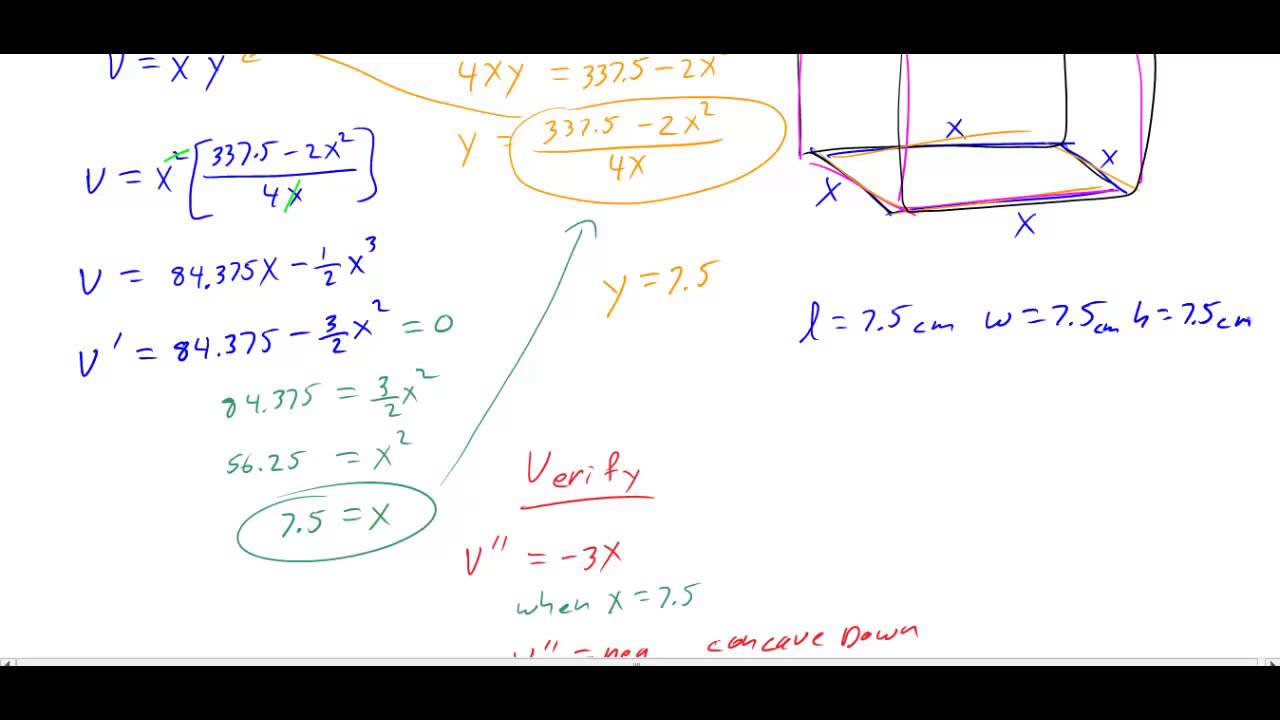 V = x y
4xy = 337.5 - 2x
y = (337.5 - 2x²)/(4x)
V = x² [(337.5 - 2x²)/(4x)]
V = 84.375x - 1/2 x³
V' = 84.375 - 3/2 x² = 0
84.375 = 3/2 x²
56.25 = x²
7.5 = x
y = 7.5
x
x
x
x
l = 7.5cm w = 7.5cm h = 7.5cm
Verify
V'' = -3x
when x = 7.5
V'' = neg concave Down